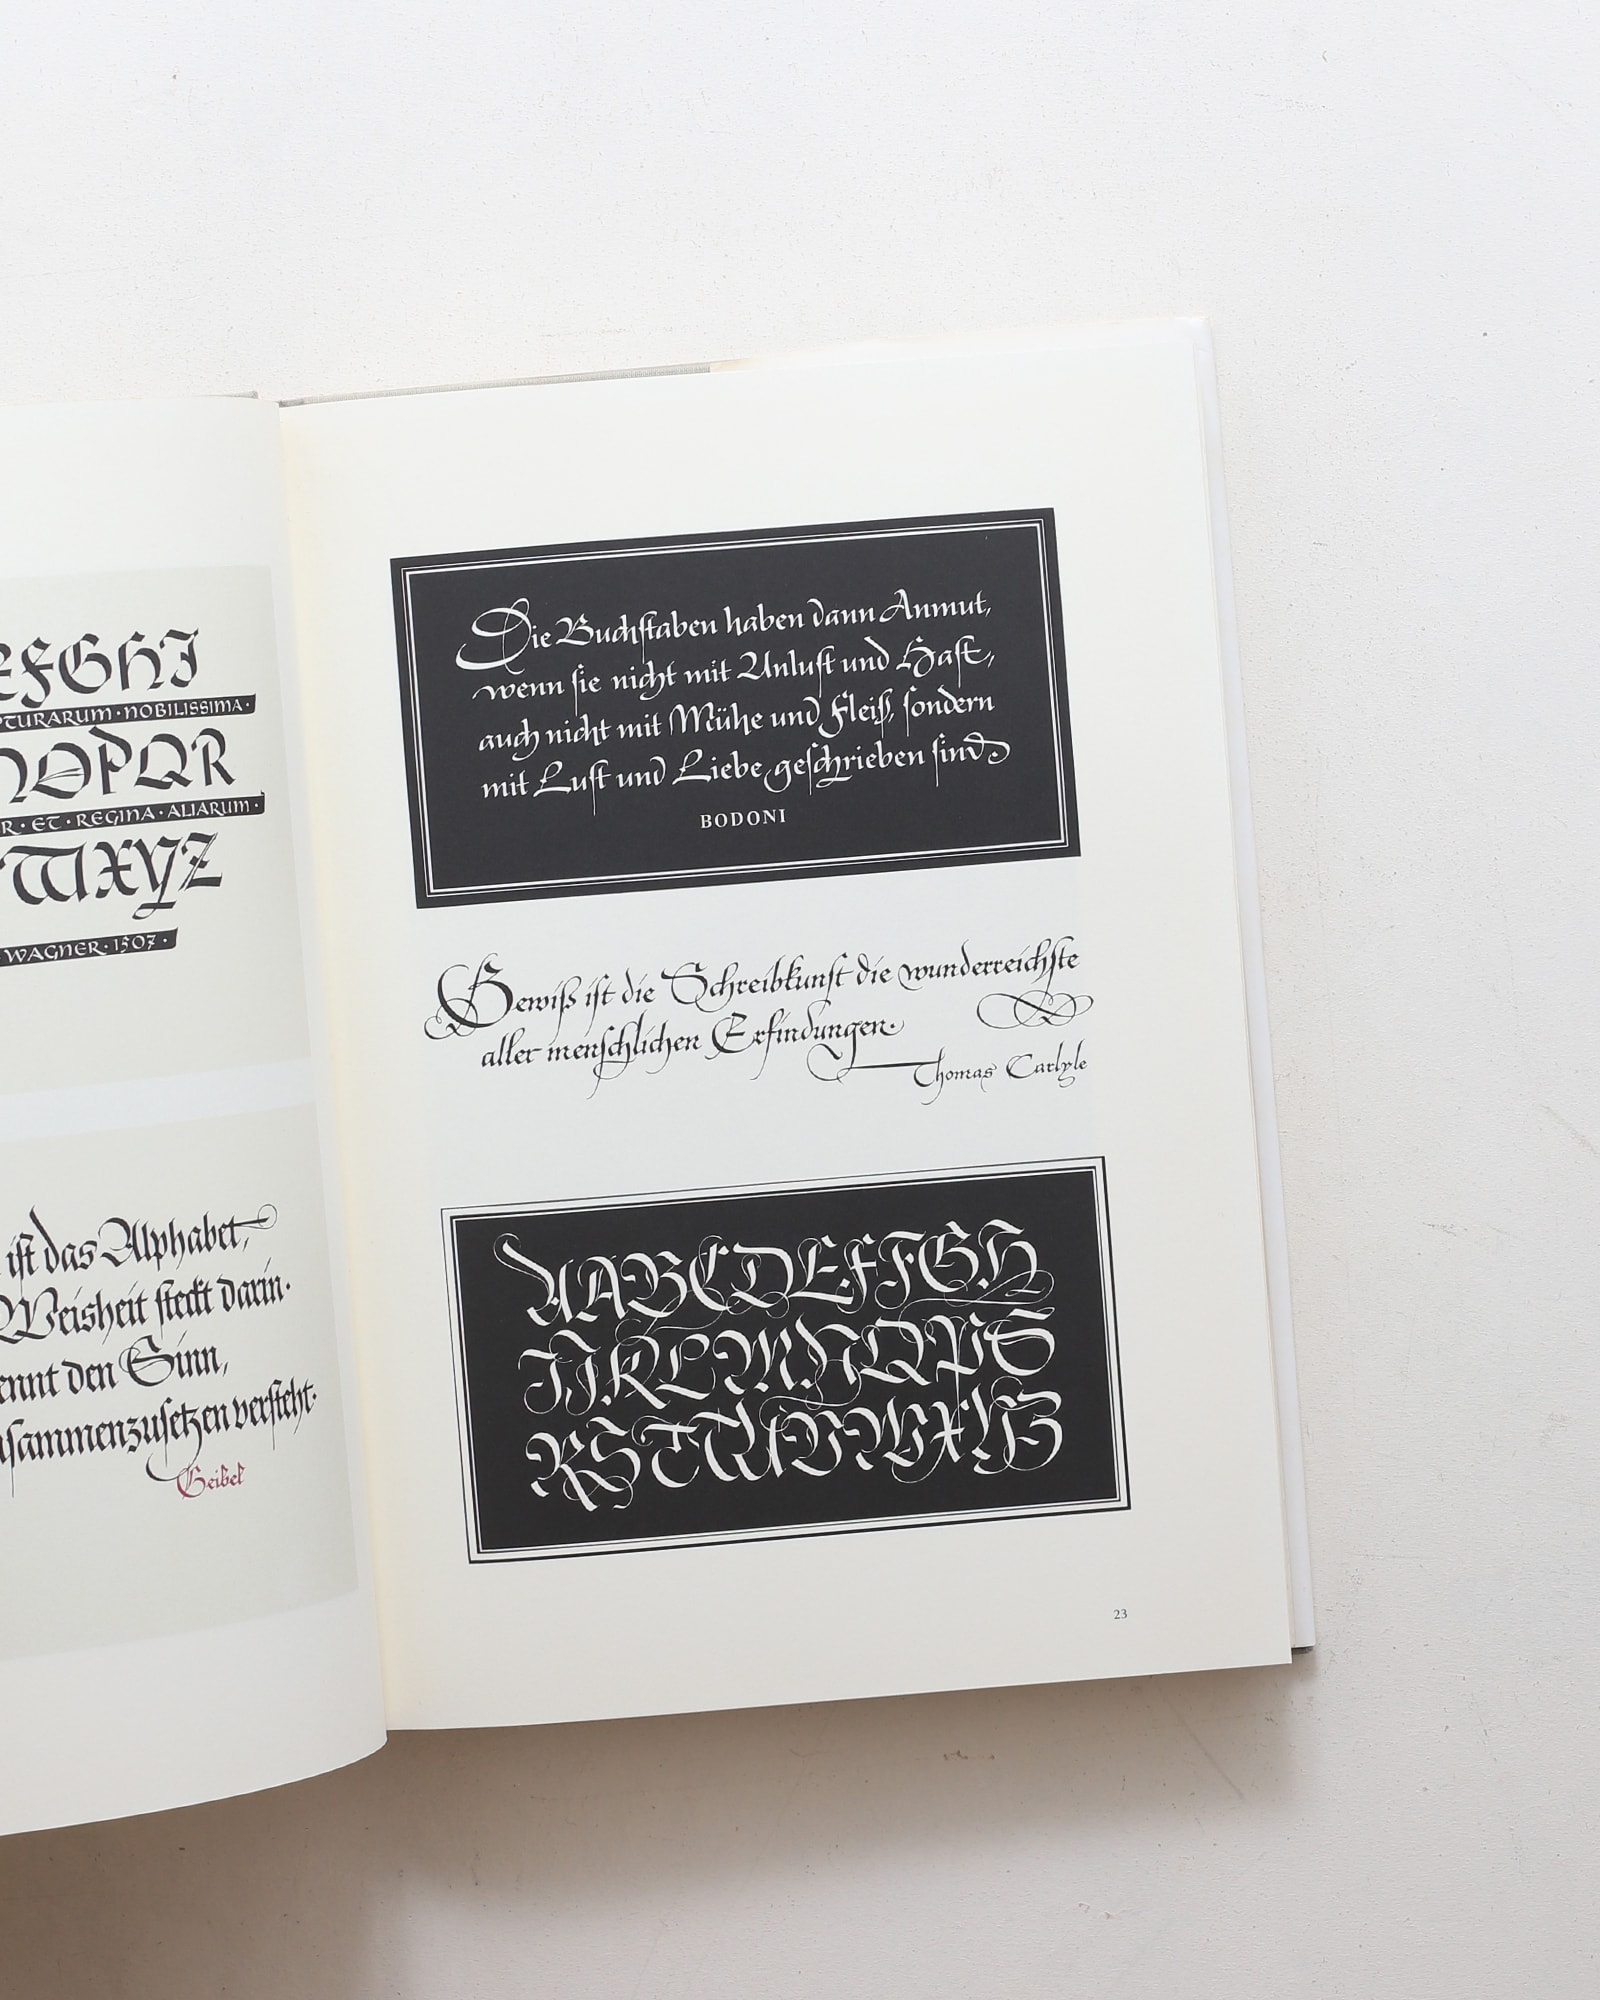 EFGHI
PTURARUM · NOBILISSIMA ·
NOPQR
R · ET · REGINA · ALIARUM ·
WXYZ
WAGNER · 1507 ·
ist das Alphabet,
Weisheit steckt darin.
den Sinn,
zusammenzusetzen versteht.
Geibel
Die Buchstaben haben dann Anmut,
wenn sie nicht mit Unlust und Hast,
auch nicht mit Mühe und Fleiß, sondern
mit Lust und Liebe geschrieben sind.
BODONI
Gewiß ist die Schreibkunst die wunderreichste
aller menschlichen Erfindungen.
Thomas Carlyle
AABCDEFFGH
IJKLMNOPS
RSTUVWXYZ
23